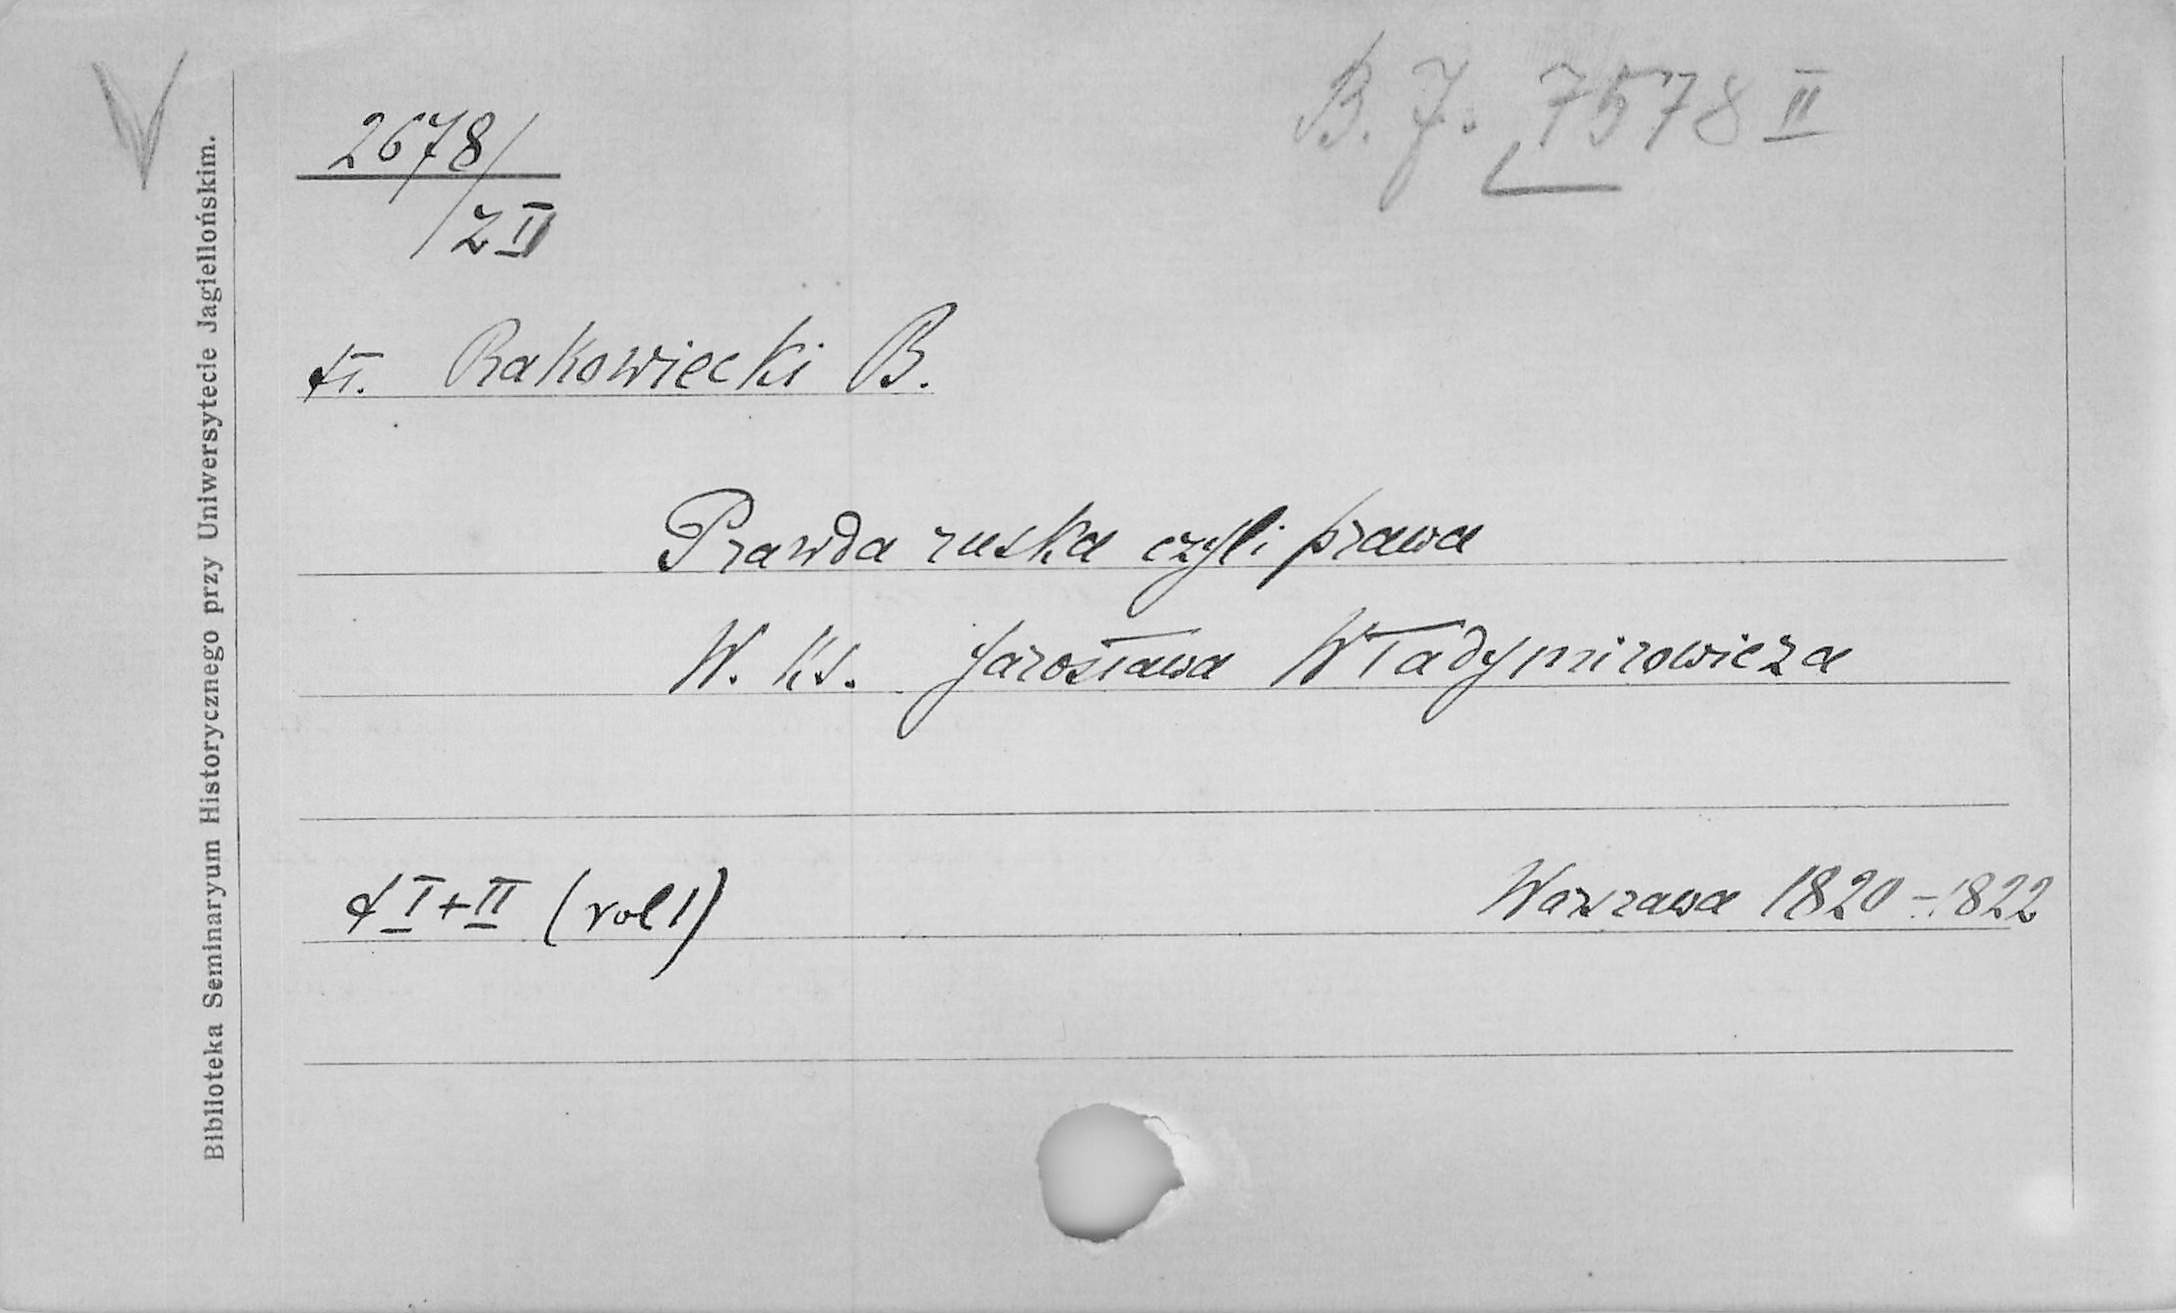 B. J. 7578 II
2678/
z II
Rakowiecki B.
Prawda ruska czyli prawa
W. Ks. Jarosława Władymirowicza
t I + II (vol 1)
Warszawa 1820-1822
Biblioteka Seminaryum Historycznego przy Uniwersytecie Jagiellońskim.